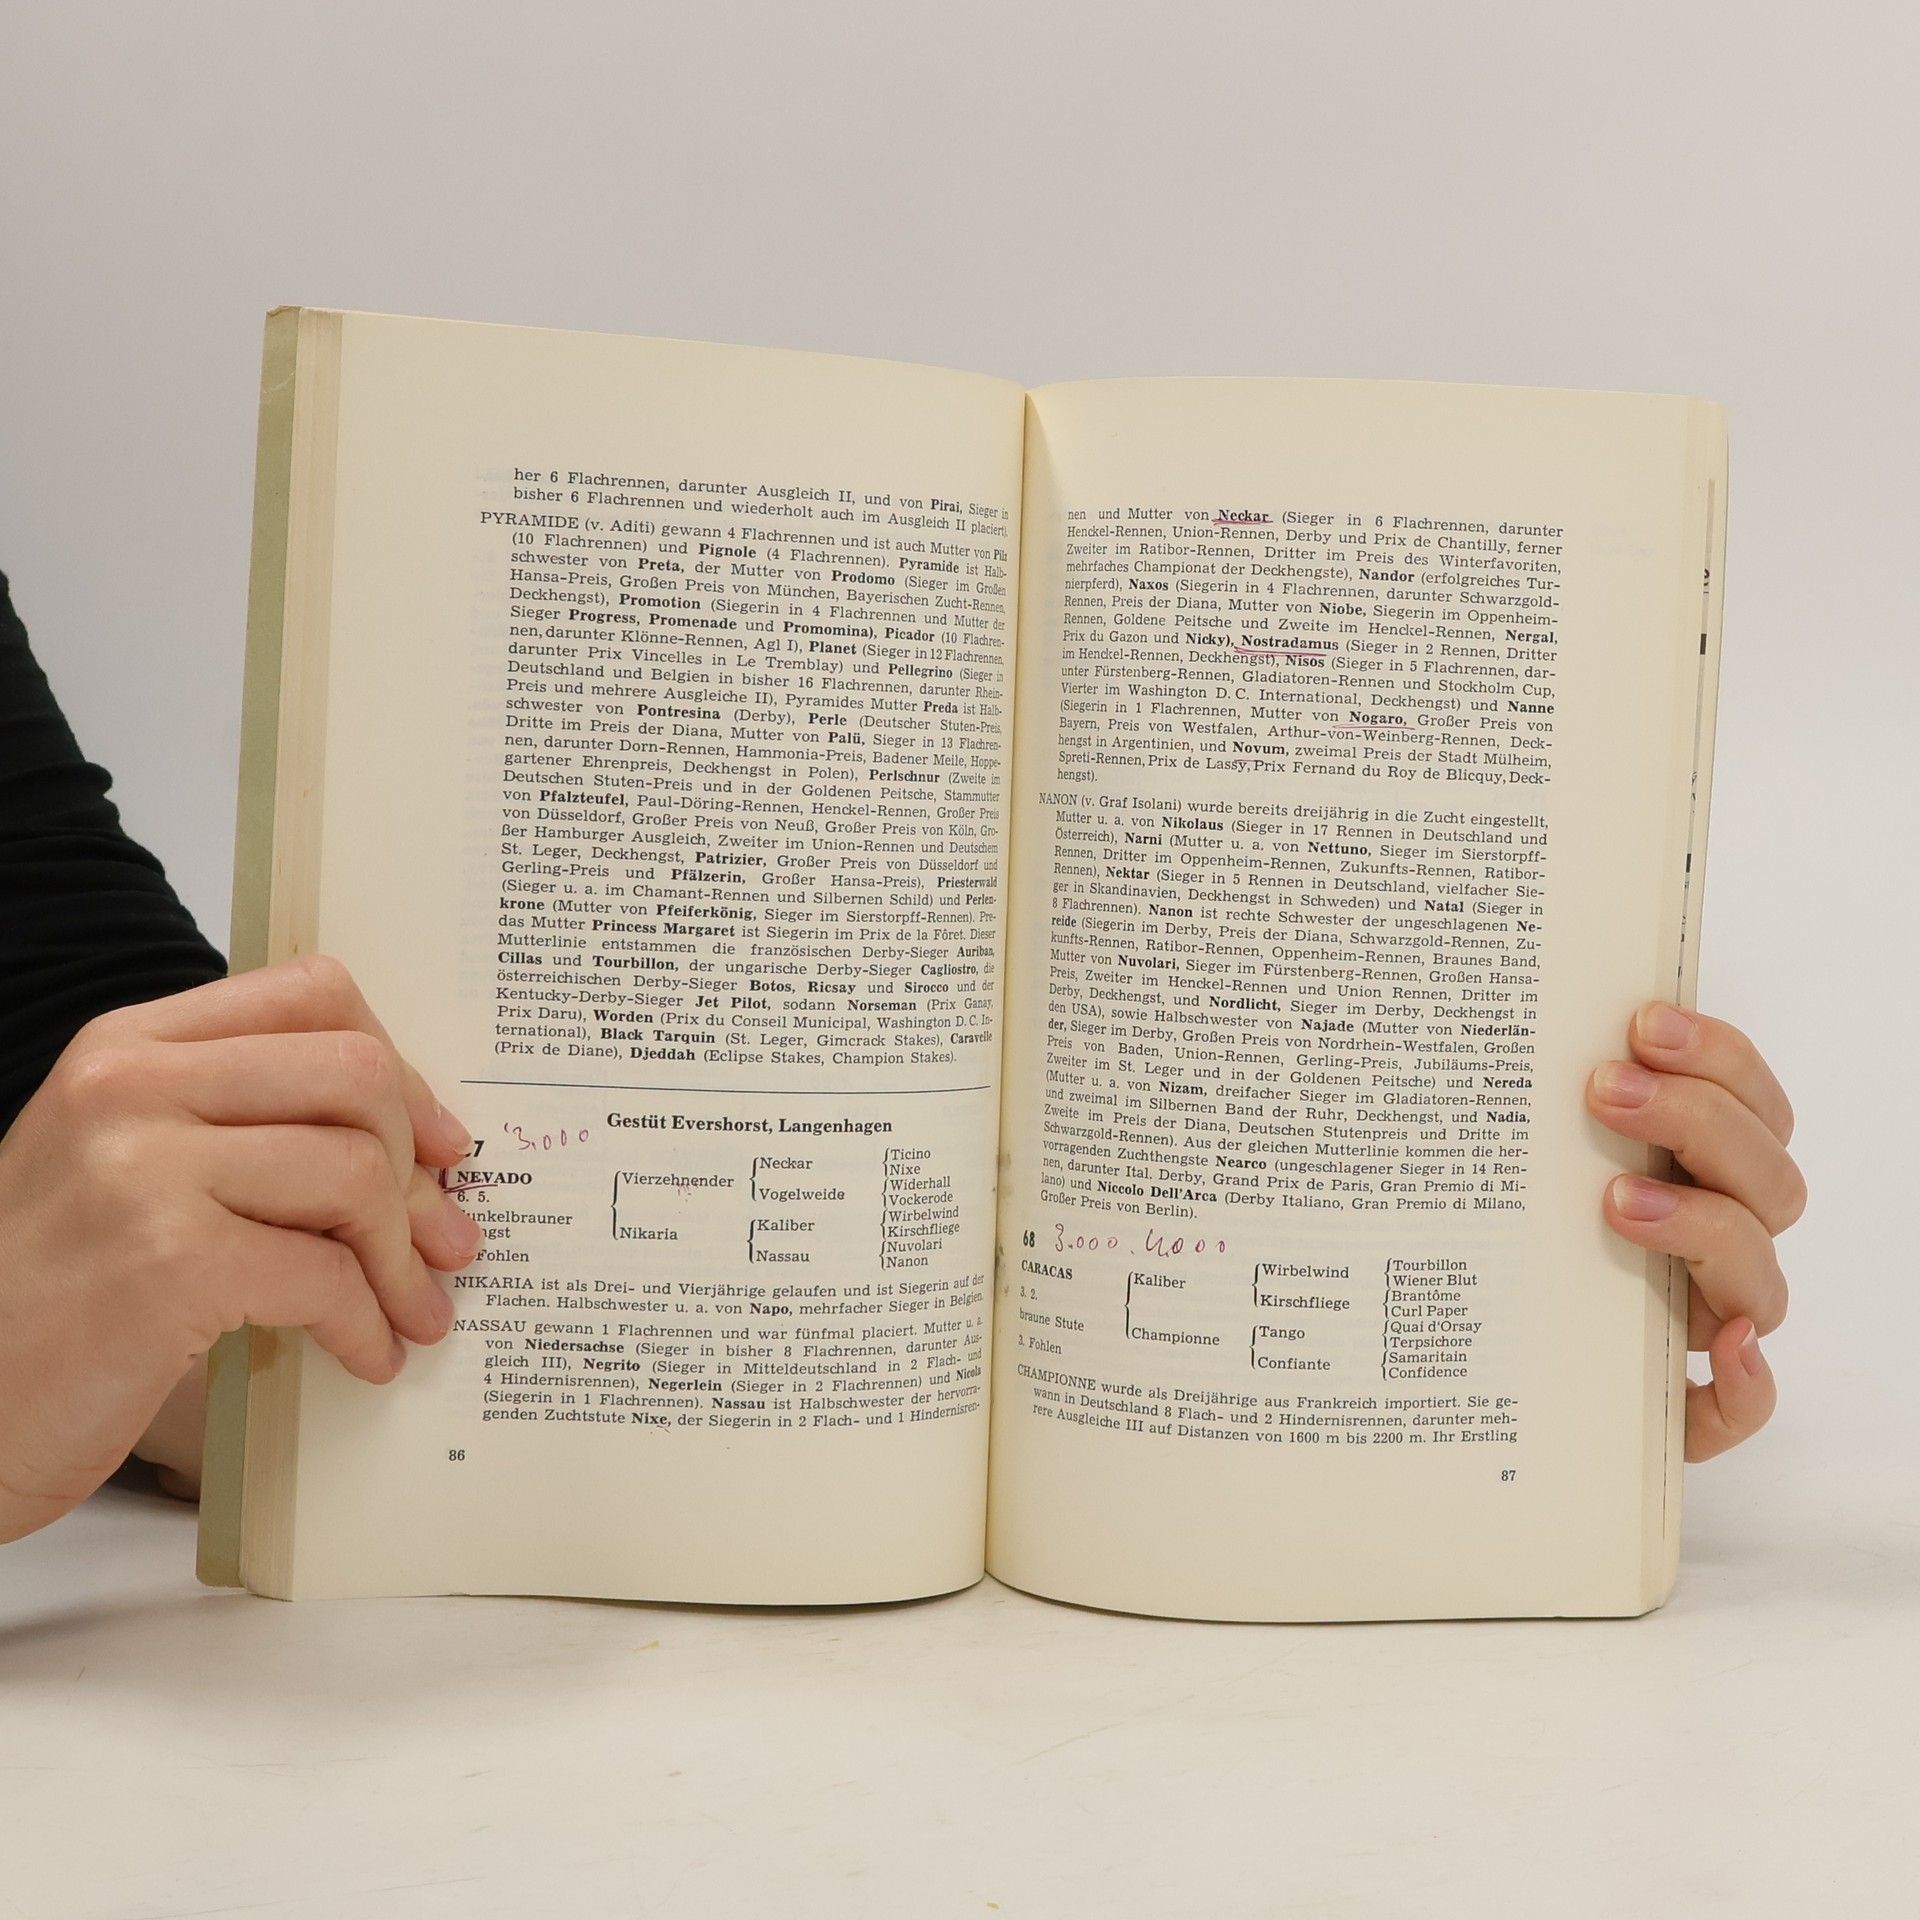 her 6 Flachrennen, darunter Ausgleich II, und von Pirai, Sieger in
bisher 6 Flachrennen und wiederholt auch im Ausgleich II placiert).
PYRAMIDE (v. Aditi) gewann 4 Flachrennen und ist auch Mutter von Pilz
(10 Flachrennen) und Pignole (4 Flachrennen). Pyramide ist Halb-
schwester von Preta, der Mutter von Prodomo (Sieger im Großen
Hansa-Preis, Großen Preis von München, Bayerischen Zucht-Rennen,
Deckhengst), Promotion (Siegerin in 4 Flachrennen und Mutter der
Sieger Progress, Promenade und Promomina), Picador (10 Flachren-
nen, darunter Klönne-Rennen, Agl I), Planet (Sieger in 12 Flachrennen,
darunter Prix Vincelles in Le Tremblay) und Pellegrino (Sieger in
Deutschland und Belgien in bisher 16 Flachrennen, darunter Rhein-
Preis und mehrere Ausgleiche II), Pyramides Mutter Preda ist Halb-
schwester von Pontresina (Derby), Perle (Deutscher Stuten-Preis,
Dritte im Preis der Diana, Mutter von Palü, Sieger in 13 Flachren-
nen, darunter Dorn-Rennen, Hammonia-Preis, Badener Meile, Hoppe-
gartener Ehrenpreis, Deckhengst in Polen), Perlschnur (Zweite im
Deutschen Stuten-Preis und in der Goldenen Peitsche, Stammutter
von Pfalzteufel, Paul-Döring-Rennen, Henckel-Rennen, Großer Preis
von Düsseldorf, Großer Preis von Neuß, Großer Preis von Köln, Gro-
ßer Hamburger Ausgleich, Zweiter im Union-Rennen und Deutschem
St. Leger, Deckhengst, Patrizier, Großer Preis von Düsseldorf und
Gerling-Preis und Pfälzerin, Großer Hansa-Preis), Priesterwald
(Sieger u. a. im Chamant-Rennen und Silbernen Schild) und Perlen-
krone (Mutter von Pfeiferkönig, Sieger im Sierstorpff-Rennen). Pre-
das Mutter Princess Margaret ist Siegerin im Prix de la Fôret. Dieser
Mutterlinie entstammen die französischen Derby-Sieger Auriban,
Cillas und Tourbillon, der ungarische Derby-Sieger Cagliostro, die
österreichischen Derby-Sieger Botos, Ricsay und Sirocco und der
Kentucky-Derby-Sieger Jet Pilot, sodann Norseman (Prix Ganay,
Prix Daru), Worden (Prix du Conseil Municipal, Washington D. C. In-
ternational), Black Tarquin (St. Leger, Gimcrack Stakes), Caravelle
(Prix de Diane), Djeddah (Eclipse Stakes, Champion Stakes).
Gestüt Evershorst, Langenhagen
7 3.000
NEVADO
6. 5.
unkelbrauner
ngst
Fohlen
Vierzehnender
Nikaria
Neckar
Vogelweide
Kaliber
Nassau
Ticino
Nixe
Widerhall
Vockerode
Wirbelwind
Kirschfliege
Nuvolari
Nanon
NIKARIA ist als Drei- und Vierjährige gelaufen und ist Siegerin auf der
Flachen. Halbschwester u. a. von Napo, mehrfacher Sieger in Belgien.
NASSAU gewann 1 Flachrennen und war fünfmal placiert. Mutter u. a.
von Niedersachse (Sieger in bisher 8 Flachrennen, darunter Aus-
gleich III), Negrito (Sieger in Mitteldeutschland in 2 Flach- und
4 Hindernisrennen), Negerlein (Sieger in 2 Flachrennen) und Nicola
(Siegerin in 1 Flachrennen). Nassau ist Halbschwester der hervorra-
genden Zuchtstute Nixe, der Siegerin in 2 Flach- und 1 Hindernisren-
86
nen und Mutter von Neckar (Sieger in 6 Flachrennen, darunter
Henckel-Rennen, Union-Rennen, Derby und Prix de Chantilly, ferner
Zweiter im Ratibor-Rennen, Dritter im Preis des Winterfavoriten,
mehrfaches Championat der Deckhengste), Nandor (erfolgreiches Tur-
nierpferd), Naxos (Siegerin in 4 Flachrennen, darunter Schwarzgold-
Rennen, Preis der Diana, Mutter von Niobe, Siegerin im Oppenheim-
Rennen, Goldene Peitsche und Zweite im Henckel-Rennen, Nergal,
Prix du Gazon und Nicky), Nostradamus (Sieger in 2 Rennen, Dritter
im Henckel-Rennen, Deckhengst), Nisos (Sieger in 5 Flachrennen, dar-
unter Fürstenberg-Rennen, Gladiatoren-Rennen und Stockholm Cup,
Vierter im Washington D. C. International, Deckhengst) und Nanne
(Siegerin in 1 Flachrennen, Mutter von Nogaro, Großer Preis von
Bayern, Preis von Westfalen, Arthur-von-Weinberg-Rennen, Deck-
hengst in Argentinien, und Novum, zweimal Preis der Stadt Mülheim,
Spreti-Rennen, Prix de Lassy, Prix Fernand du Roy de Blicquy, Deck-
hengst).
NANON (v. Graf Isolani) wurde bereits dreijährig in die Zucht eingestellt,
Mutter u. a. von Nikolaus (Sieger in 17 Rennen in Deutschland und
Österreich), Narni (Mutter u. a. von Nettuno, Sieger im Sierstorpff-
Rennen, Dritter im Oppenheim-Rennen, Zukunfts-Rennen, Ratibor-
Rennen), Nektar (Sieger in 5 Rennen in Deutschland, vielfacher Sie-
ger in Skandinavien, Deckhengst in Schweden) und Natal (Sieger in
8 Flachrennen). Nanon ist rechte Schwester der ungeschlagenen Ne-
reide (Siegerin im Derby, Preis der Diana, Schwarzgold-Rennen, Zu-
kunfts-Rennen, Ratibor-Rennen, Oppenheim-Rennen, Braunes Band,
Mutter von Nuvolari, Sieger im Fürstenberg-Rennen, Großen Hansa-
Preis, Zweiter im Henckel-Rennen und Union Rennen, Dritter im
Derby, Deckhengst, und Nordlicht, Sieger im Derby, Deckhengst in
den USA), sowie Halbschwester von Najade (Mutter von Niederlän-
der, Sieger im Derby, Großen Preis von Nordrhein-Westfalen, Großen
Preis von Baden, Union-Rennen, Gerling-Preis, Jubiläums-Preis,
Zweiter im St. Leger und in der Goldenen Peitsche) und Nereda
(Mutter u. a. von Nizam, dreifacher Sieger im Gladiatoren-Rennen,
und zweimal im Silbernen Band der Ruhr, Deckhengst, und Nadia,
Zweite im Preis der Diana, Deutschen Stutenpreis und Dritte im
Schwarzgold-Rennen). Aus der gleichen Mutterlinie kommen die her-
vorragenden Zuchthengste Nearco (ungeschlagener Sieger in 14 Ren-
nen, darunter Ital. Derby, Grand Prix de Paris, Gran Premio di Mi-
lano) und Niccolo Dell'Arca (Derby Italiano, Gran Premio di Milano,
Großer Preis von Berlin).
68 3.000. 4000
CARACAS
3. 2.
braune Stute
3. Fohlen
Kaliber
Championne
Wirbelwind
Kirschfliege
Tango
Confiante
Tourbillon
Wiener Blut
Brantôme
Curl Paper
Quai d'Orsay
Terpsichore
Samaritain
Confidence
CHAMPIONNE wurde als Dreijährige aus Frankreich importiert. Sie ge-
wann in Deutschland 8 Flach- und 2 Hindernisrennen, darunter meh-
rere Ausgleiche III auf Distanzen von 1600 m bis 2200 m. Ihr Erstling
87